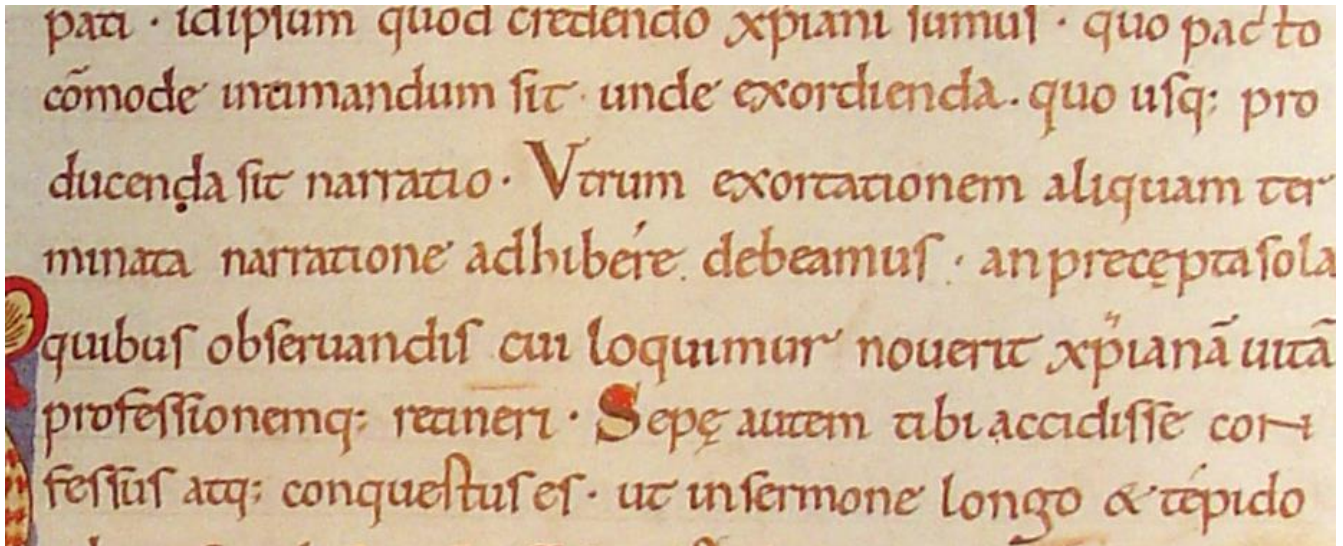 pati · idipsum quod credendo xpiani sumus · quo pacto
cōmode intimandum sit · unde exordienda. quo usq; pro
ducenda sit narratio · Vtrum exortationem aliquam ter
minata narratione adhibere debeamus · an precępta sola
quibus obseruandis cui loquimur nouerit xpianā uitā
professionemq; retineri · Sepę autem tibi accidisse con
fessus atq; conquestus es · ut in sermone longo & tepido